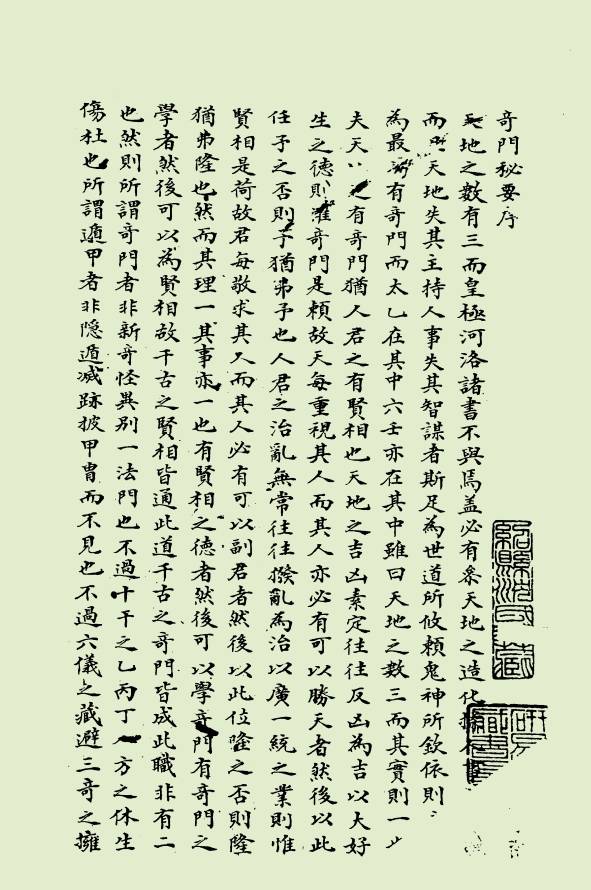 奇門秘要序
地之數有三而皇極河洛諸書不與焉盖必有叅天地之造化
而天地失其主持人事失其智謀者斯足為世道所攸賴鬼神所欽依則
為最有奇門而太乙在其中六壬亦在其中雖曰天地之數三而其實則一
夫天之有奇門猶人君之有賢相也天地之吉凶素定往往反凶為吉以大好
生之德則惟奇門是賴故天每重視其人而其人亦必有可以勝天者然後以此
任予之否則予猶弗予也人君之治亂無常往往撥亂為治以廣一統之業則惟
賢相是荷故君每敬求其人而其人必有可以副君者然後以此位隆之否則隆
猶弗隆也然而其理一其事亦一也有賢相之德者然後可以學奇門有奇門之
學者然後可以為賢相故千古之賢相皆通此道千古之奇門皆成此職非有二
也然則所謂奇門者非新奇怪異別一法門也不過十干之乙丙丁八方之休生
傷杜也所謂遁甲者非隐遁滅跡披甲冑而不見也不過六儀之藏避三奇之擁